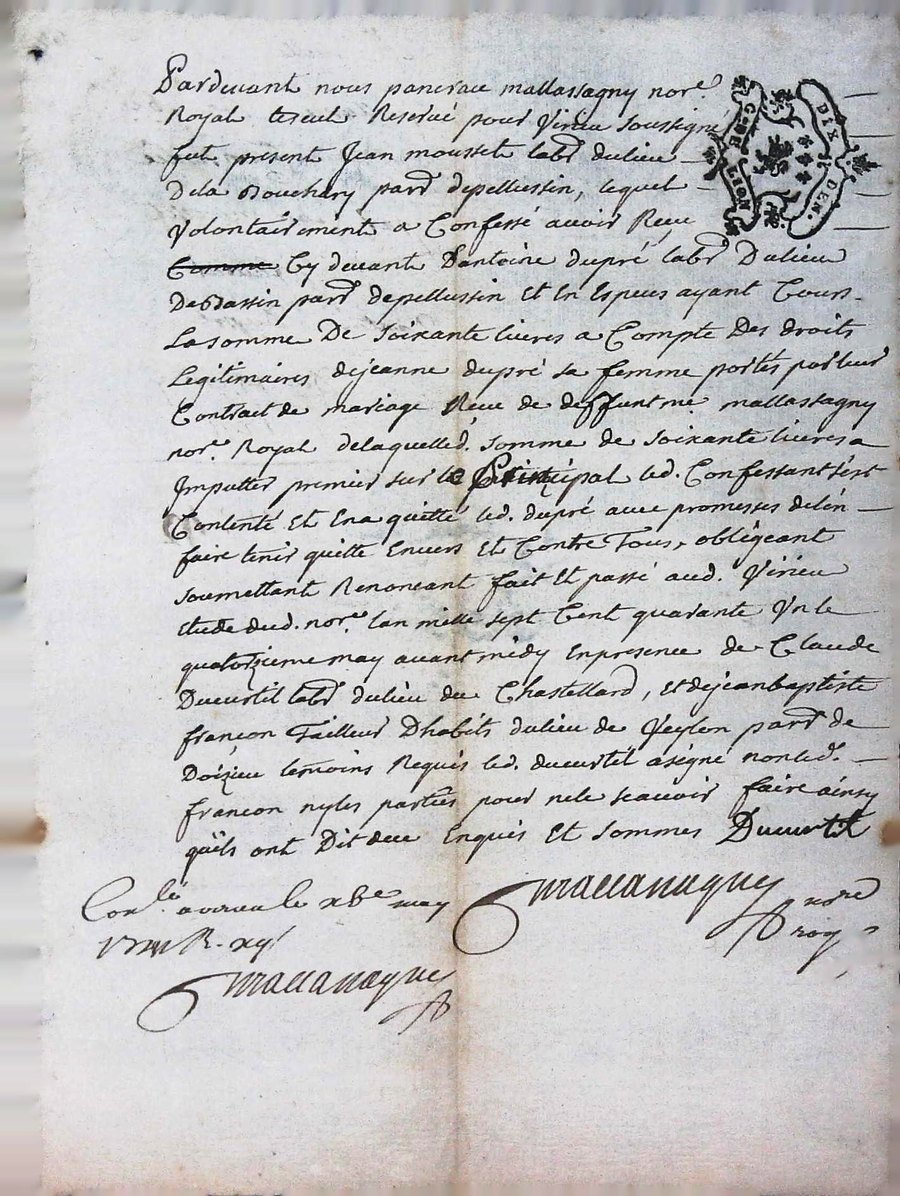 Pardevant nous pancrace mallassagny nore.
Royal et seul Reservé pour Virieu soussigné
fut present Jean mousset labr. dulieu
Dela Bouchary parr. depellussin, lequel
Volontairement a Confessé avoir Receu
Comme Cy devant D'antoine dupré labr. Dulieu
De parr. depellussin Et En Especes ayant Cours
La somme De soixante livres a Compte Des droits
Legitimaires dejeanne dupré sa femme portés parleur
Contract de mariage Receu de deffunt me. mallassagny
nore. Royal delaquelle d. somme de soixante livres a
Imputter premier sur le Principal led. Confessant s'est
Contenté Et Ena quitté led. dupré avec promesses delen
faire tenir quitte Envers Et Contre Tous, obligeant
soumettant Renoncant fait Et passé aud. Virieu
Etude dud. nore. lan mille sept Cent quarante Un le
quatorzieme may avant midy En presence de Claude
Ducurtil labr. dulieu du Chastellard, et dejean baptiste
françon Tailleur Dhabits dulieu de Veylon parr. de
Doizieu temoins Requis led. ducurtil a signé non led.
françon ny les parties pour ne le scavoir faire ainsy
quils ont Dit de ce Enquis Et sommés Ducurtil
Conlé. a virieu le may
mallassagny
nore
roy
mallassagny
G. DE LION
DIX DEN.